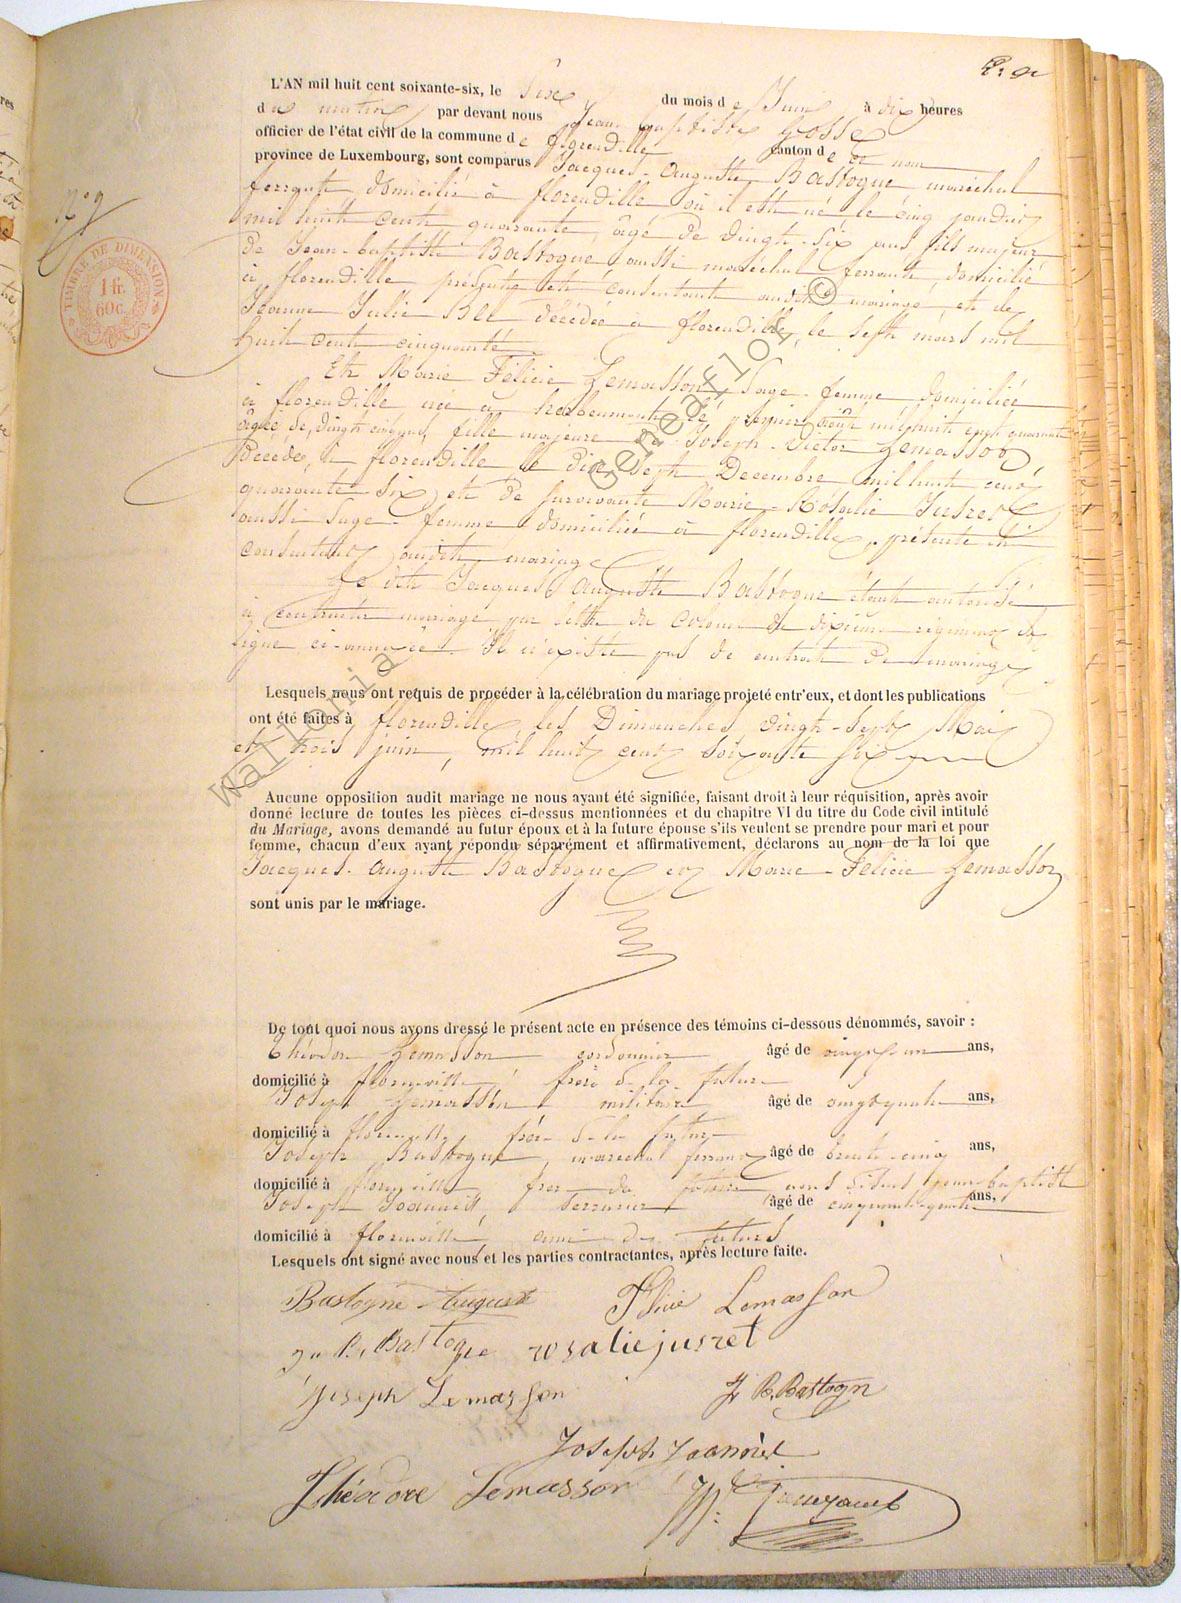 L'AN mil huit cent soixante-six, le du mois de Juin à dix heures
du matin par devant nous Jean Baptiste Gosse
officier de l'état civil de la commune de florenville canton de ce nom
province de Luxembourg, sont comparus Jacques-Auguste Bastogne maréchal
ferrant domicilié à florenville où il est né le cinq janvier
mil huit cent quarante, âgé de vingt-six ans, fils majeur
de Jean-baptiste Bastogne aussi maréchal ferrant, domicilié
à florenville présent et consentant audit mariage, et de
Jeanne Julie décédée à florenville, le sept mars mil
huit cent cinquante
N° 9
TIMBRE DE DIMENSION
1 fr.
60c.
Et Marie Félicie Lemasson Sage-femme domiciliée
à florenville née à herbeumont le premier août mil huit cent quarante
âgée de vingt cinq ans, fille majeure de Joseph-Victor Lemasson
décédé à florenville le dix sept Decembre mil huit cent
quarante-six, et de survivante Marie-Rosalie Jusret
aussi Sage-femme domiciliée à florenville, présente et
consentant audit mariage
Le dit Jacques Auguste Bastogne étant autorisé
à contracter mariage par lettre du Colonel du dixième régiment de
ligne ci-annexée. Il n'existe pas de contrat de mariage
Lesquels nous ont requis de procéder à la célébration du mariage projeté entr'eux, et dont les publications
ont été faites à florenville les Dimanches vingt-sept Mai
et trois juin, mil huit cent soixante six
Aucune opposition audit mariage ne nous ayant été signifiée, faisant droit à leur réquisition, après avoir
donné lecture de toutes les pièces ci-dessus mentionnées et du chapitre VI du titre du Code civil intitulé
du Mariage, avons demandé au futur époux et à la future épouse s'ils veulent se prendre pour mari et pour
femme, chacun d'eux ayant répondu séparément et affirmativement, déclarons au nom de la loi que
Jacques-Auguste Bastogne et Marie-Félicie Lemasson
sont unis par le mariage.
De tout quoi nous avons dressé le présent acte en présence des témoins ci-dessous dénommés, savoir :
Théodore Lemasson cordonnier âgé de vingt un ans,
domicilié à florenville, frère de la future
Joseph Lemasson militaire âgé de vingt quatre ans,
domicilié à florenville, frère de la future
Joseph Bastogne, marechal ferrant âgé de trente-cinq ans,
domicilié à florenville frère du futur jean-baptiste
Joseph Jeannot, serrurier, âgé de cinquante-quatre ans,
domicilié à florenville, ami des futurs
Lesquels ont signé avec nous et les parties contractantes, après lecture faite.
Bastogne Auguste Félicie Lemasson
J. B. Bastogne rosalie jusret
Joseph Lemasson J. B. Bastogn
Joseph
Théodore Lemasson
wallonia © Geneaflor